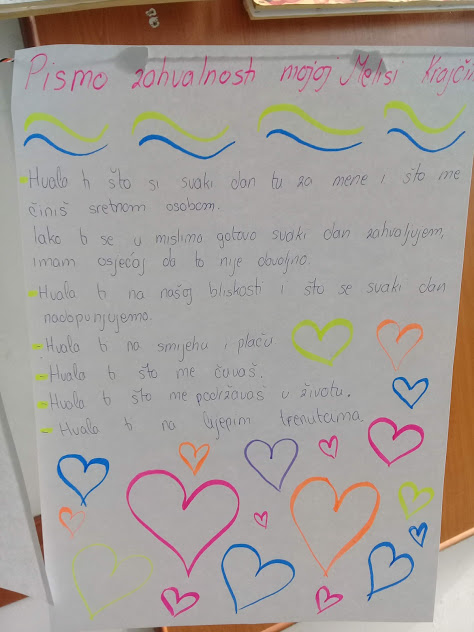 Pismo zahvalnosti mojoj Melisi Krajči
- Hvala ti što si svaki dan tu za mene i što me
činiš sretnom osobom.
Iako ti se u mislima gotovo svaki dan zahvaljujem,
imam osjećaj da to nije dovoljno.
- Hvala ti na našoj bliskosti i što se svaki dan
nadopunjujemo.
- Hvala ti na smijehu i plaču
- Hvala ti što me čuvaš.
- Hvala ti što me podržavaš u životu.
- Hvala ti na lijepim trenutcima.